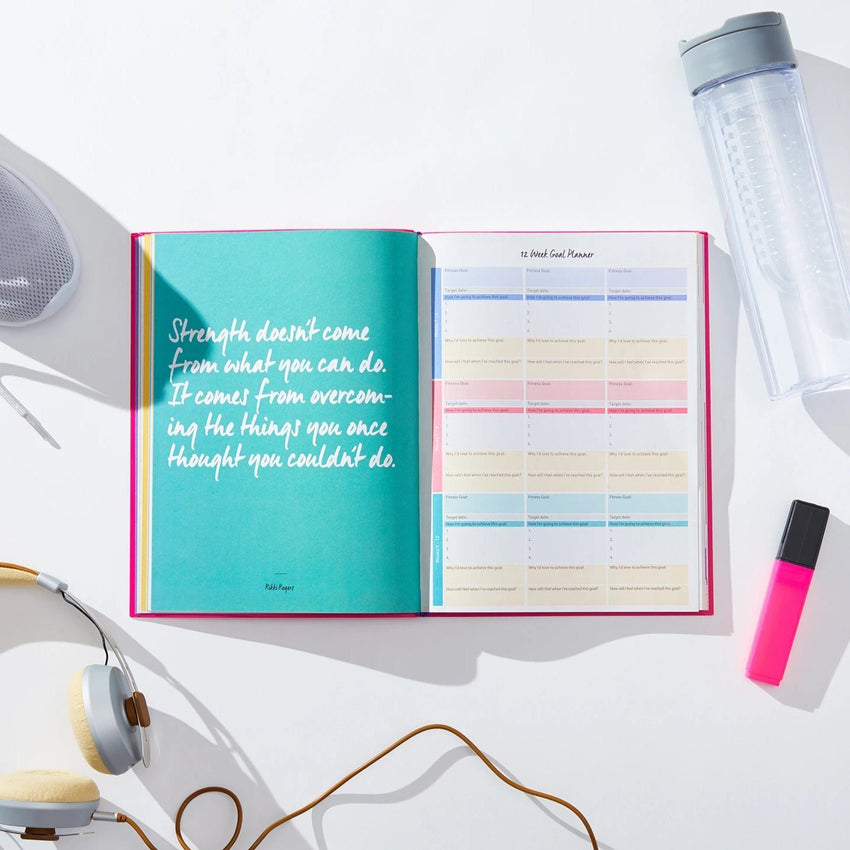 Strength doesn't come
from what you can do.
It comes from overcom-
ing the things you once
thought you couldn't do.
Rikki Rogers
12 Week Goal Planner
Fitness Goal: Fitness Goal: Fitness Goal:
Target date: Target date: Target date:
How I'm going to achieve this goal: How I'm going to achieve this goal: How I'm going to achieve this goal:
1. 1. 1.
2. 2. 2.
3. 3. 3.
4. 4. 4.
Why I'd love to achieve this goal: Why I'd love to achieve this goal: Why I'd love to achieve this goal:
How will I feel when I've reached this goal? How will I feel when I've reached this goal? How will I feel when I've reached this goal?
Fitness Goal: Fitness Goal: Fitness Goal:
Target date: Target date: Target date:
How I'm going to achieve this goal: How I'm going to achieve this goal: How I'm going to achieve this goal:
1. 1. 1.
2. 2. 2.
3. 3. 3.
4. 4. 4.
Why I'd love to achieve this goal: Why I'd love to achieve this goal: Why I'd love to achieve this goal:
How will I feel when I've reached this goal? How will I feel when I've reached this goal? How will I feel when I've reached this goal?
Weeks 9 - 12
Fitness Goal: Fitness Goal: Fitness Goal:
Target date: Target date: Target date:
How I'm going to achieve this goal: How I'm going to achieve this goal: How I'm going to achieve this goal:
1. 1. 1.
2. 2. 2.
3. 3. 3.
4. 4. 4.
Why I'd love to achieve this goal: Why I'd love to achieve this goal: Why I'd love to achieve this goal:
How will I feel when I've reached this goal? How will I feel when I've reached this goal? How will I feel when I've reached this goal?